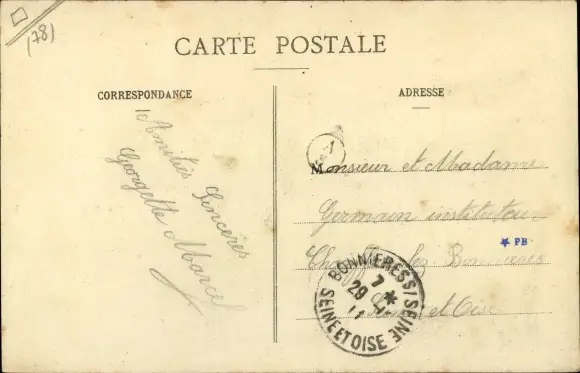 (78)
CARTE POSTALE
CORRESPONDANCE
ADRESSE
Amitiés Sincères
Georgette Marcel
Monsieur et Madame
Germain instituteu
lez Bonnières
et Oise
PB
BONNIERES S/ SEINE
7 *
29
11
SEINE ET OISE